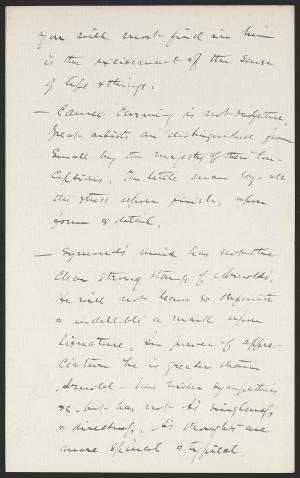 you will most find in him
is the excitement of the sense
of life & things.
— Cameo carving is not sculpture,
Great artists are distinguished from
small by the majesty of their con-
ceptions. The little man lays all
the stress upon finish, upon
form & detail.
— Symonds' mind has not the
clear strong stamp of Arnold's.
He will not leave so definite
& indelible a mark upon
literature. In power of appre-
ciation he is greater than
Arnold – has wider sympathies
&c. but has not his singleness
& directness. His thoughts are
more & typical.